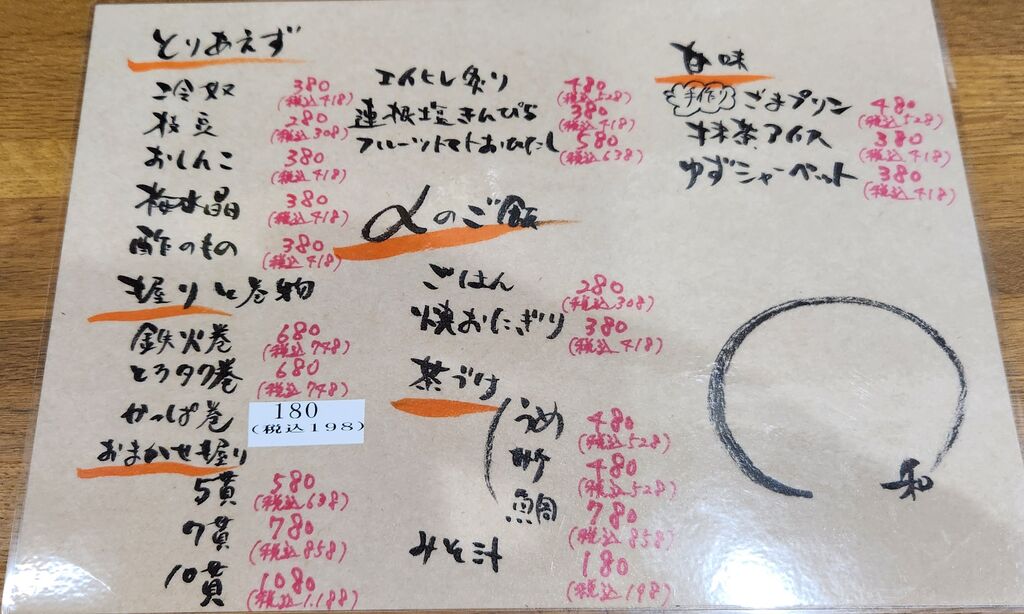 とりあえず
冷奴 380
(税込418)
枝豆 280
(税込308)
おしんこ 380
(税込418)
梅水晶 380
(税込418)
酢のもの 380
(税込418)
握りと巻物
鉄火巻 680
(税込748)
とろタク巻 680
(税込748)
かっぱ巻 180
(税込198)
おまかせ握り
5貫 580
(税込638)
7貫 780
(税込858)
10貫 1080
(税込1.188)
エイヒレ炙り 480
(税込528)
蓮根きんぴら 380
(税込418)
フルーツトマトおひたし 580
(税込638)
〆のご飯
ごはん 280
(税込308)
焼おにぎり 380
(税込418)
茶づけ
うめ 480
(税込528)
480
(税込528)
鯛 780
(税込858)
みそ汁 180
(税込198)
甘味
手作り ごまプリン 480
(税込528)
抹茶アイス 380
(税込418)
ゆずシャーベット 380
(税込418)
和